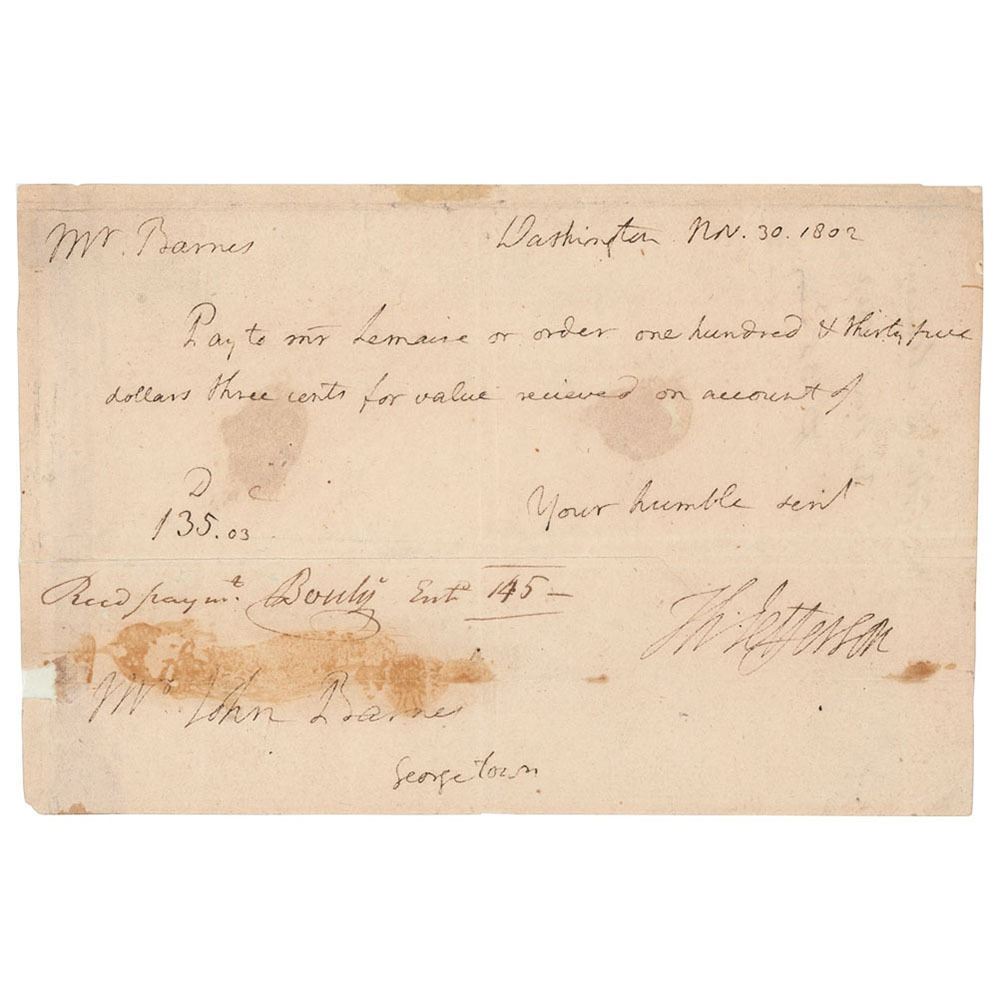 Mr. Barnes
Washington Nov. 30. 1802
Pay to mr Lemaire or order one hundred & thirty five
dollars three cents for value recieved on account of
D
135.03
Your humble servt
Recd paymt. Ent. 145 —
Th: Jefferson
Mr John Barnes
George town